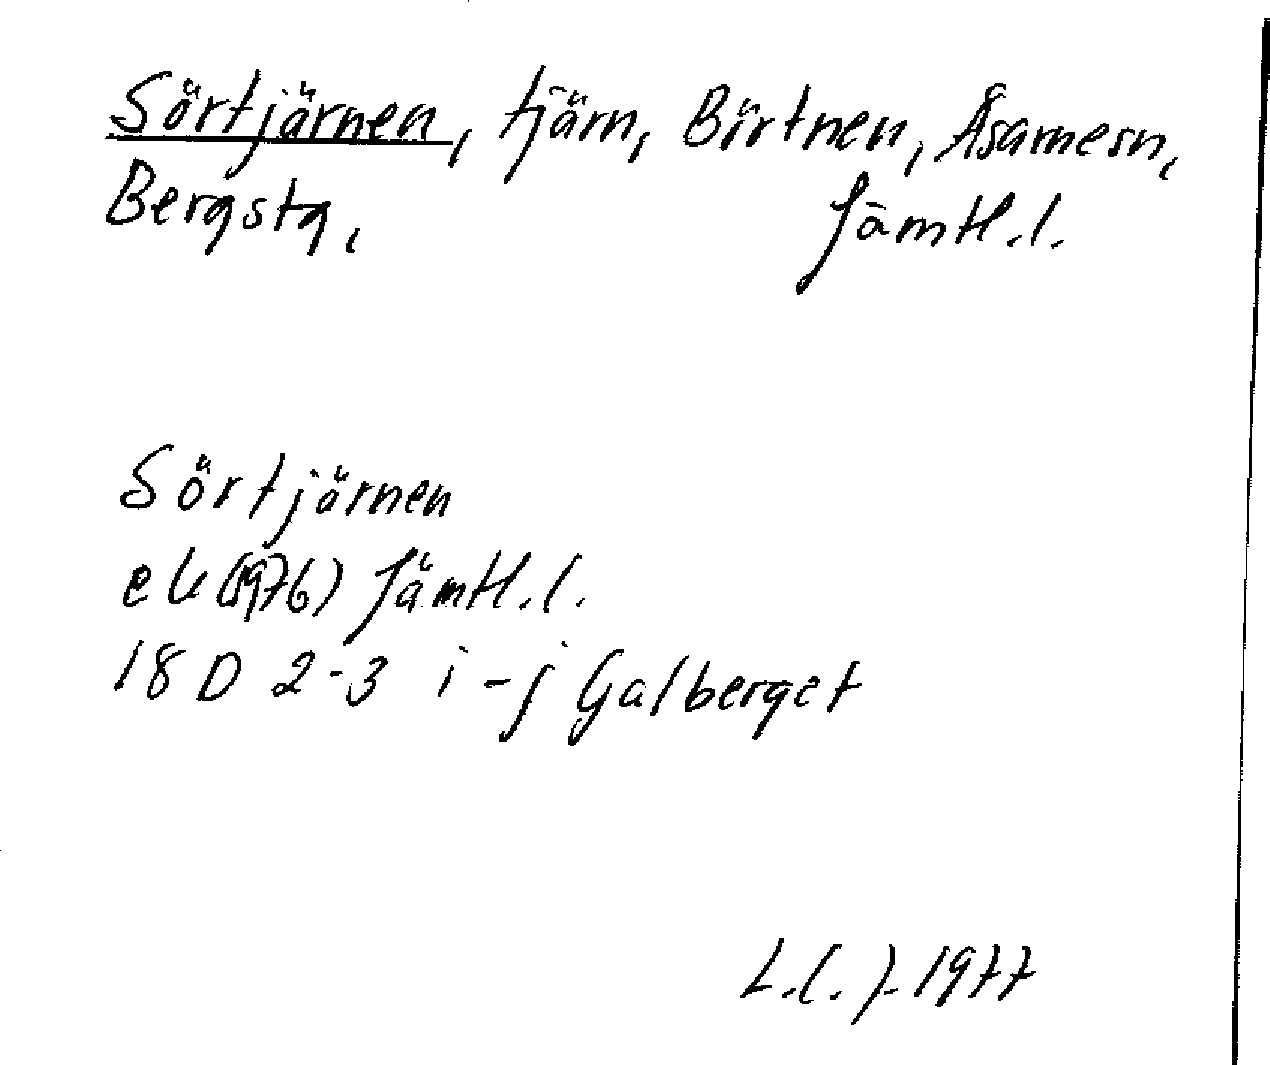 Sörtjärnen, tjärn, Börtnen, Åsarnesn,
Bergstg, Jämtl.l.
Sörtjärnen
ek (1976) Jämtl.l.
18 D 2-3 i-j Galberget
L.l.J. 1977